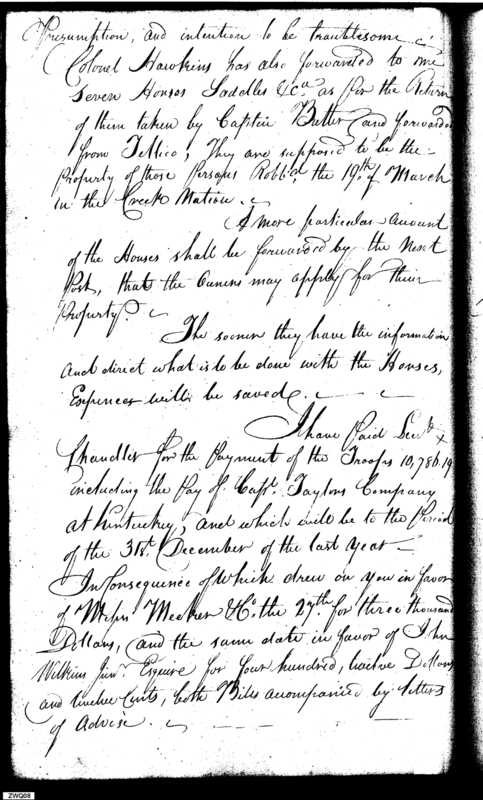 Presumption, and intention to be troublesome
Colonel Hawkins has also forwarded to me
Seven Horses Saddles &ca. as per the Return
of them taken by Captin Butler (and forwarded
from Tellico; They are supposed to be the
Property of those Persons Robb'd, the 19th. of March
in the Creek Nation.
A more particular amount
of the Horses shall be forwarded by the Next
Post, that the Owners may apply for their
Property.
The sooner they have the information
and direct what is to be done with the Horses,
Expences will be saved.
I have Paid Lieut.
Chandler for the Payment of the Troops 10,786.19
including the Pay of Capt. Taylors Company
at Kentuckey, and which will be to the Period
of the 31st. December of the last Year
In Consequence of Which drew on you in favor
of Messrs Meeker & Co. the 27th. for three thousand
Dollars, and the same date in favor of John
Wilkins Junr. Esquire for four hundred, twelve Dollars
and twelve Cents, both Bills accompanied by letters
of Advise.
ZWQ08